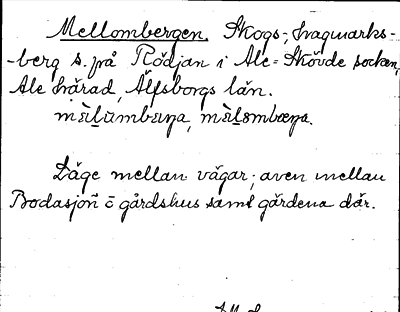 Mellombergen. Skogs-, hagmarks-
-berg s. på Rödjan i Ale-Skövde socken,
Ale härad, Älfsborgs län.
Läge mellan vägar; även mellan
Bodasjön o gårdshus samt gärdena där.